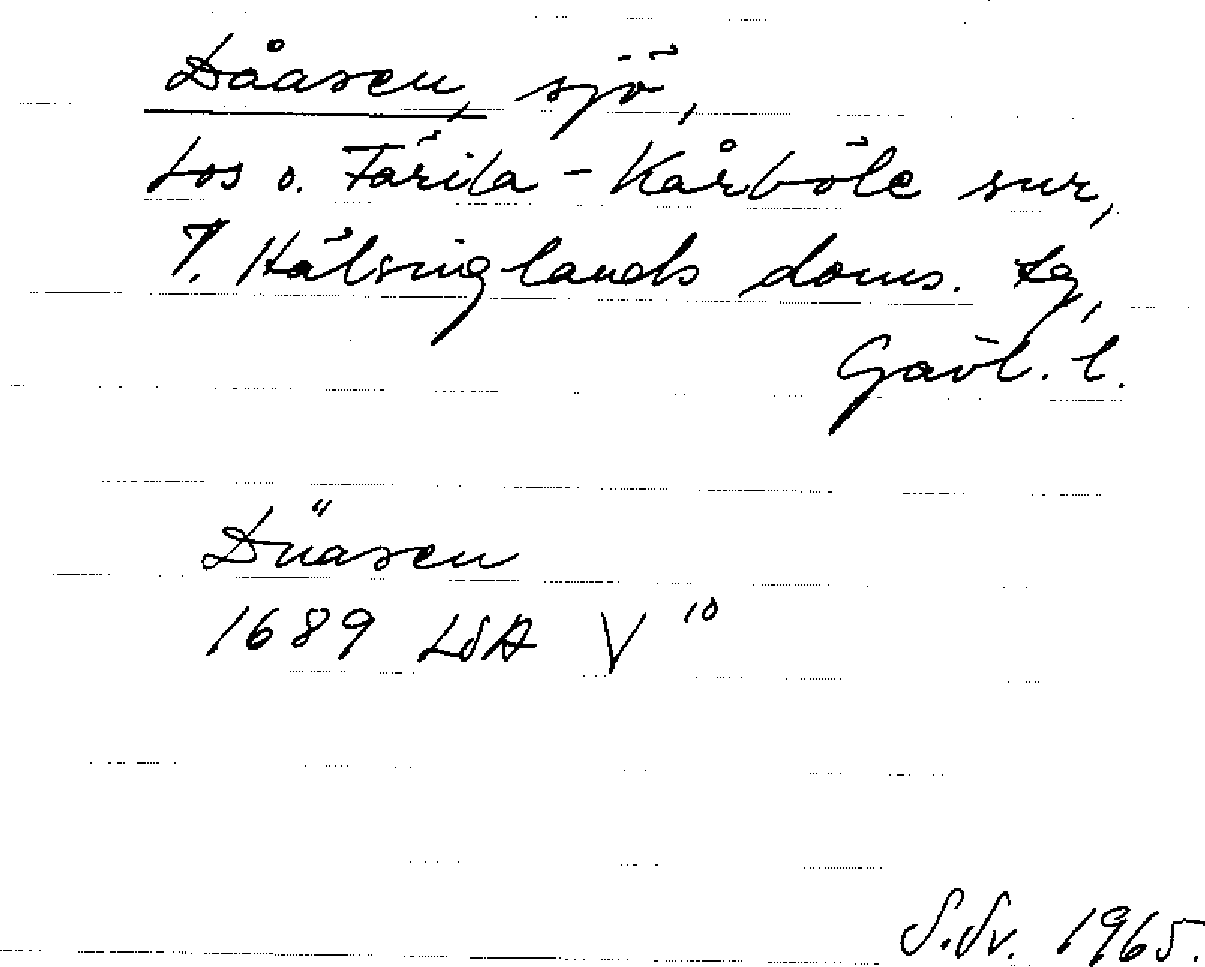 Dåasen, sjö,
Los o. Färila - Kårböle snr,
V. Hälsinglands doms. tg,
Gävl. l.
Düasen
1689 LSA V 10
S.Sv. 1965.